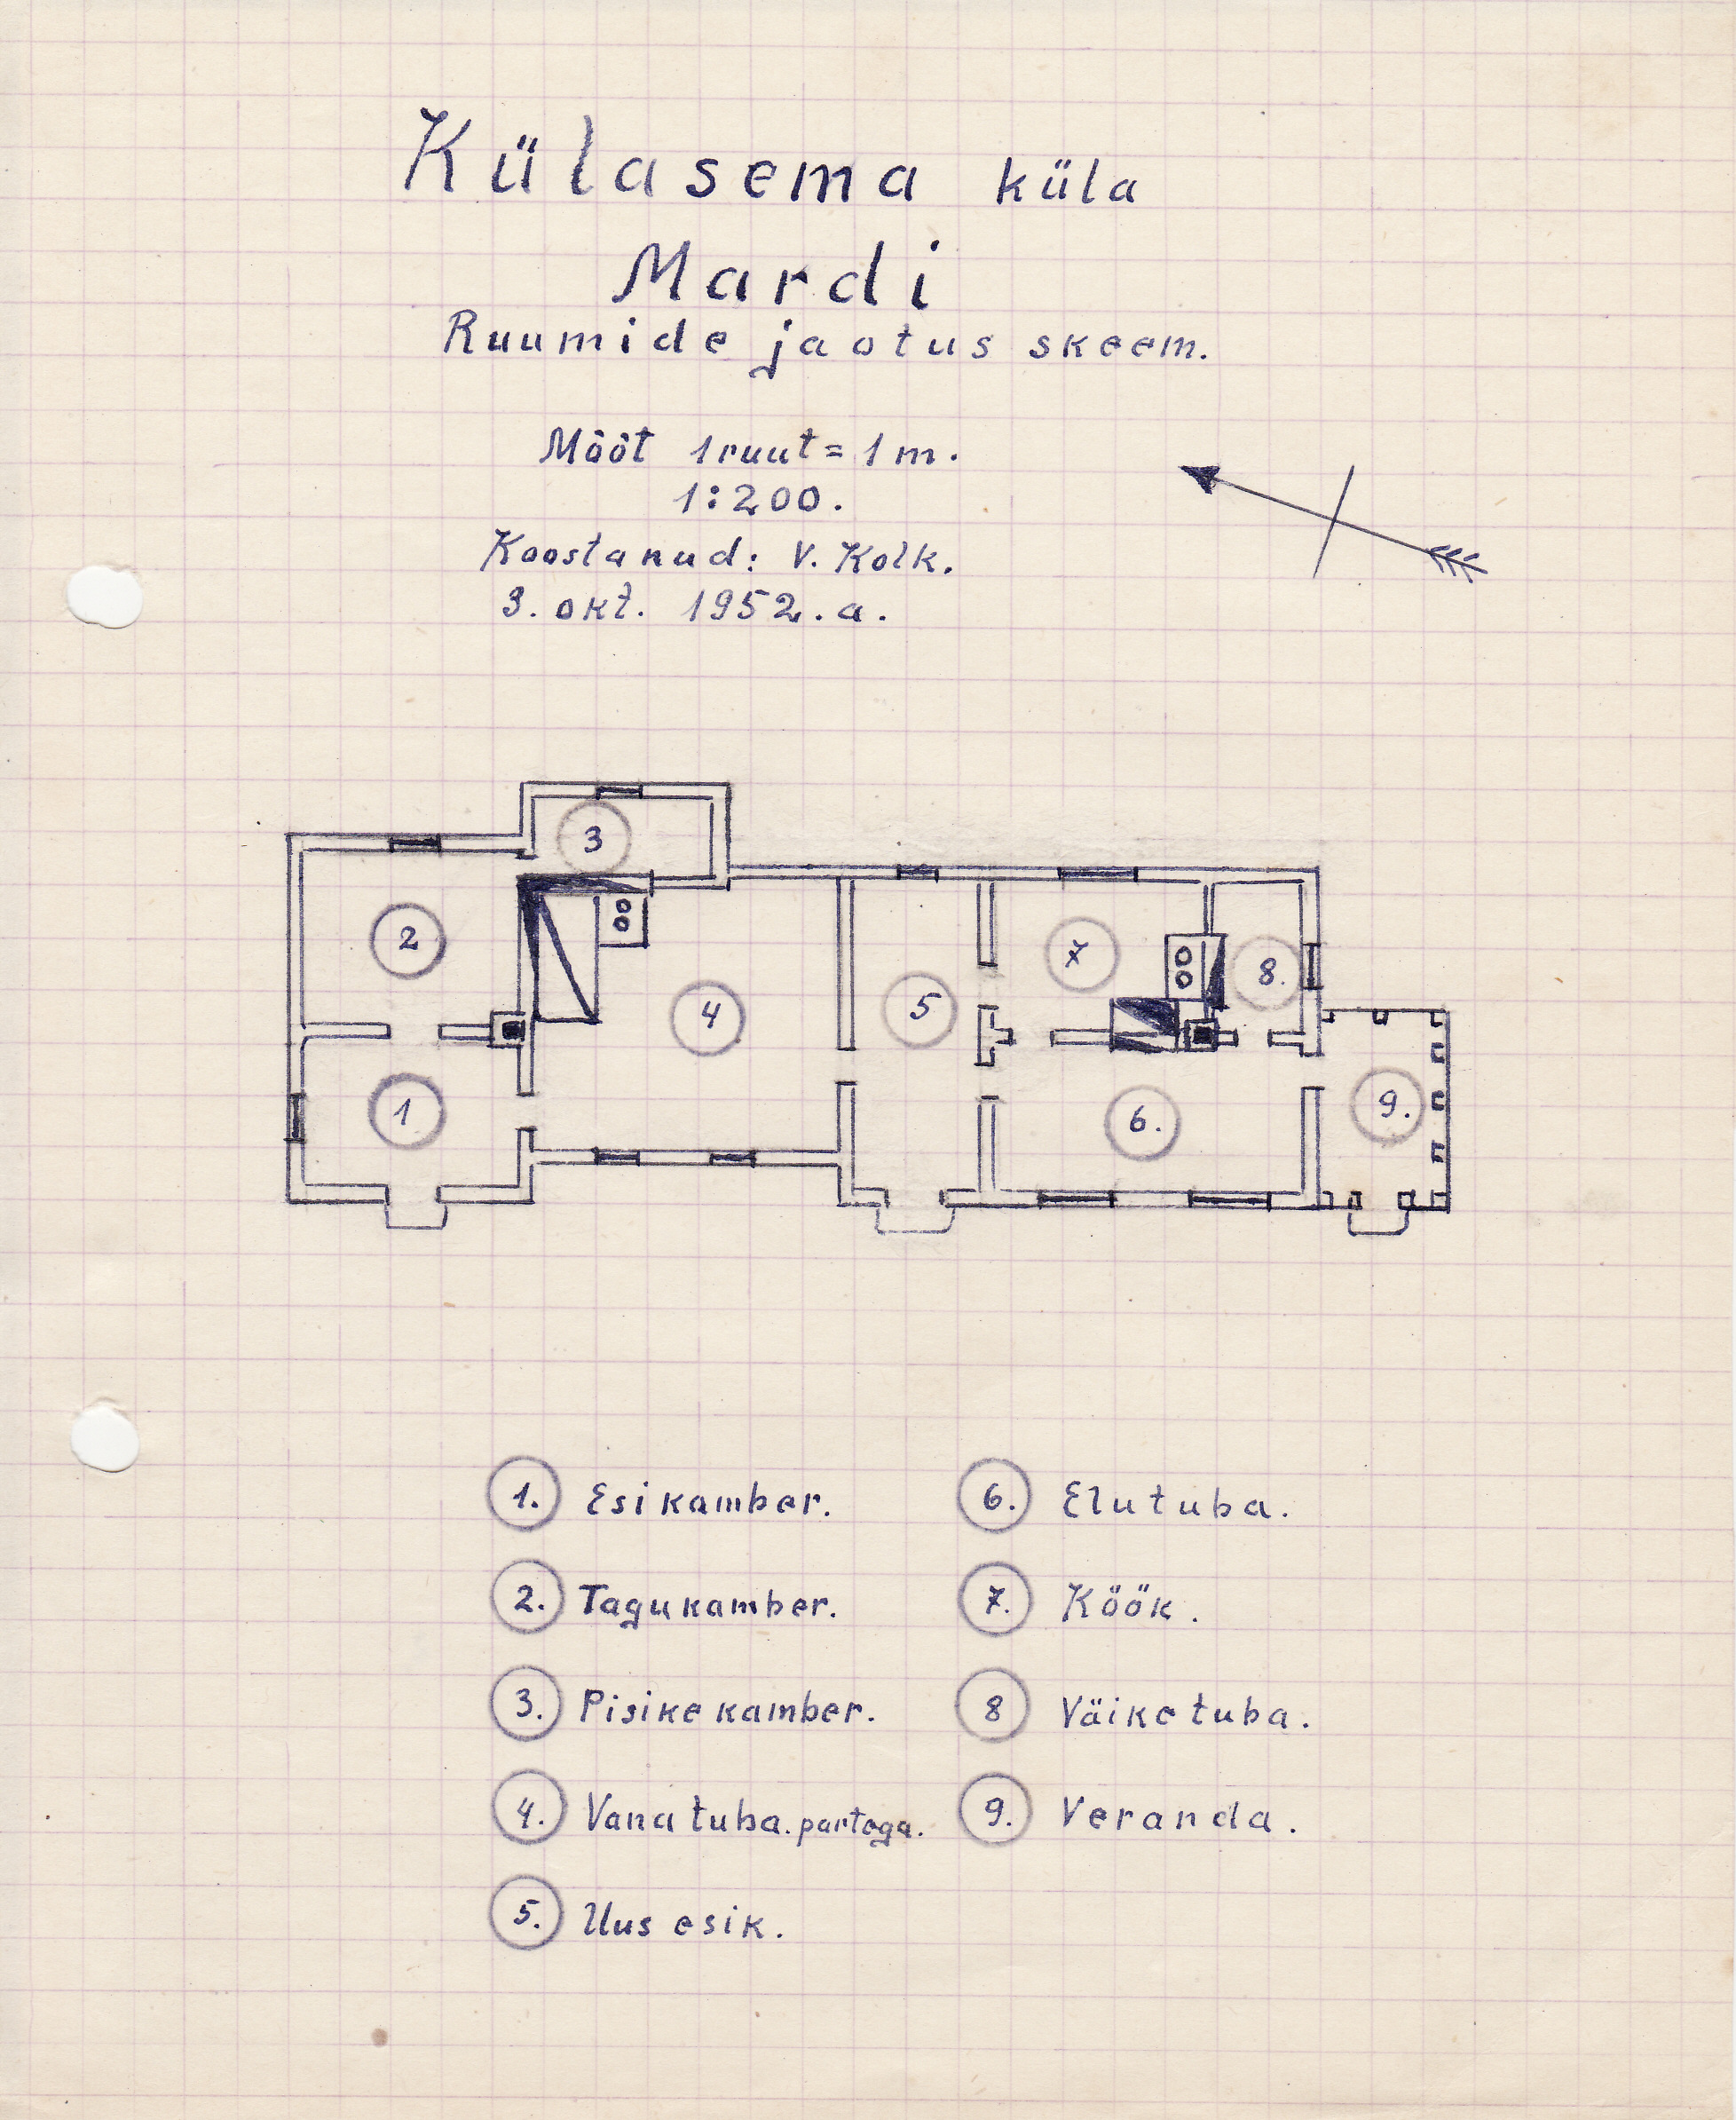 Külasema küla
Mardi
Ruumide jaotus skeem.
Mõõt 1 ruut = 1 m.
1:200.
Koostanud: V. Kolk.
3. okt. 1952. a.
3
2
4
5
7
8.
1
6.
9.
1. Esikamber.
2. Tagukamber.
3. Pisike kamber.
4. Vana tuba. partega.
5. Uus esik.
6. Elutuba.
7. Köök.
8 Väike tuba.
9. Veranda.